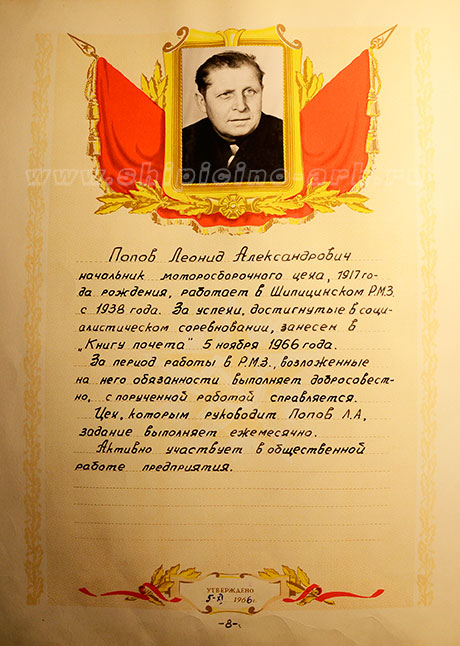 www.shipicino-ark.ru
Попов Леонид Александрович
начальник моторосборочного цеха, 1917 го-
да рождения, работает в Шипицинском Р.М.З.
с 1938 года. За успехи, достигнутые в соци-
алистическом соревновании, занесен в
„Книгу почета" 5 ноября 1966 года.
За период работы в Р.М.З., возложенные
на него обязанности выполняет добросовест-
но, с порученной работой справляется.
Цех, которым руководит Попов Л.А,
задание выполняет ежемесячно.
Активно участвует в общественной
работе предприятия.
УТВЕРЖДЕНО
5-XI 1966 г.
-8-